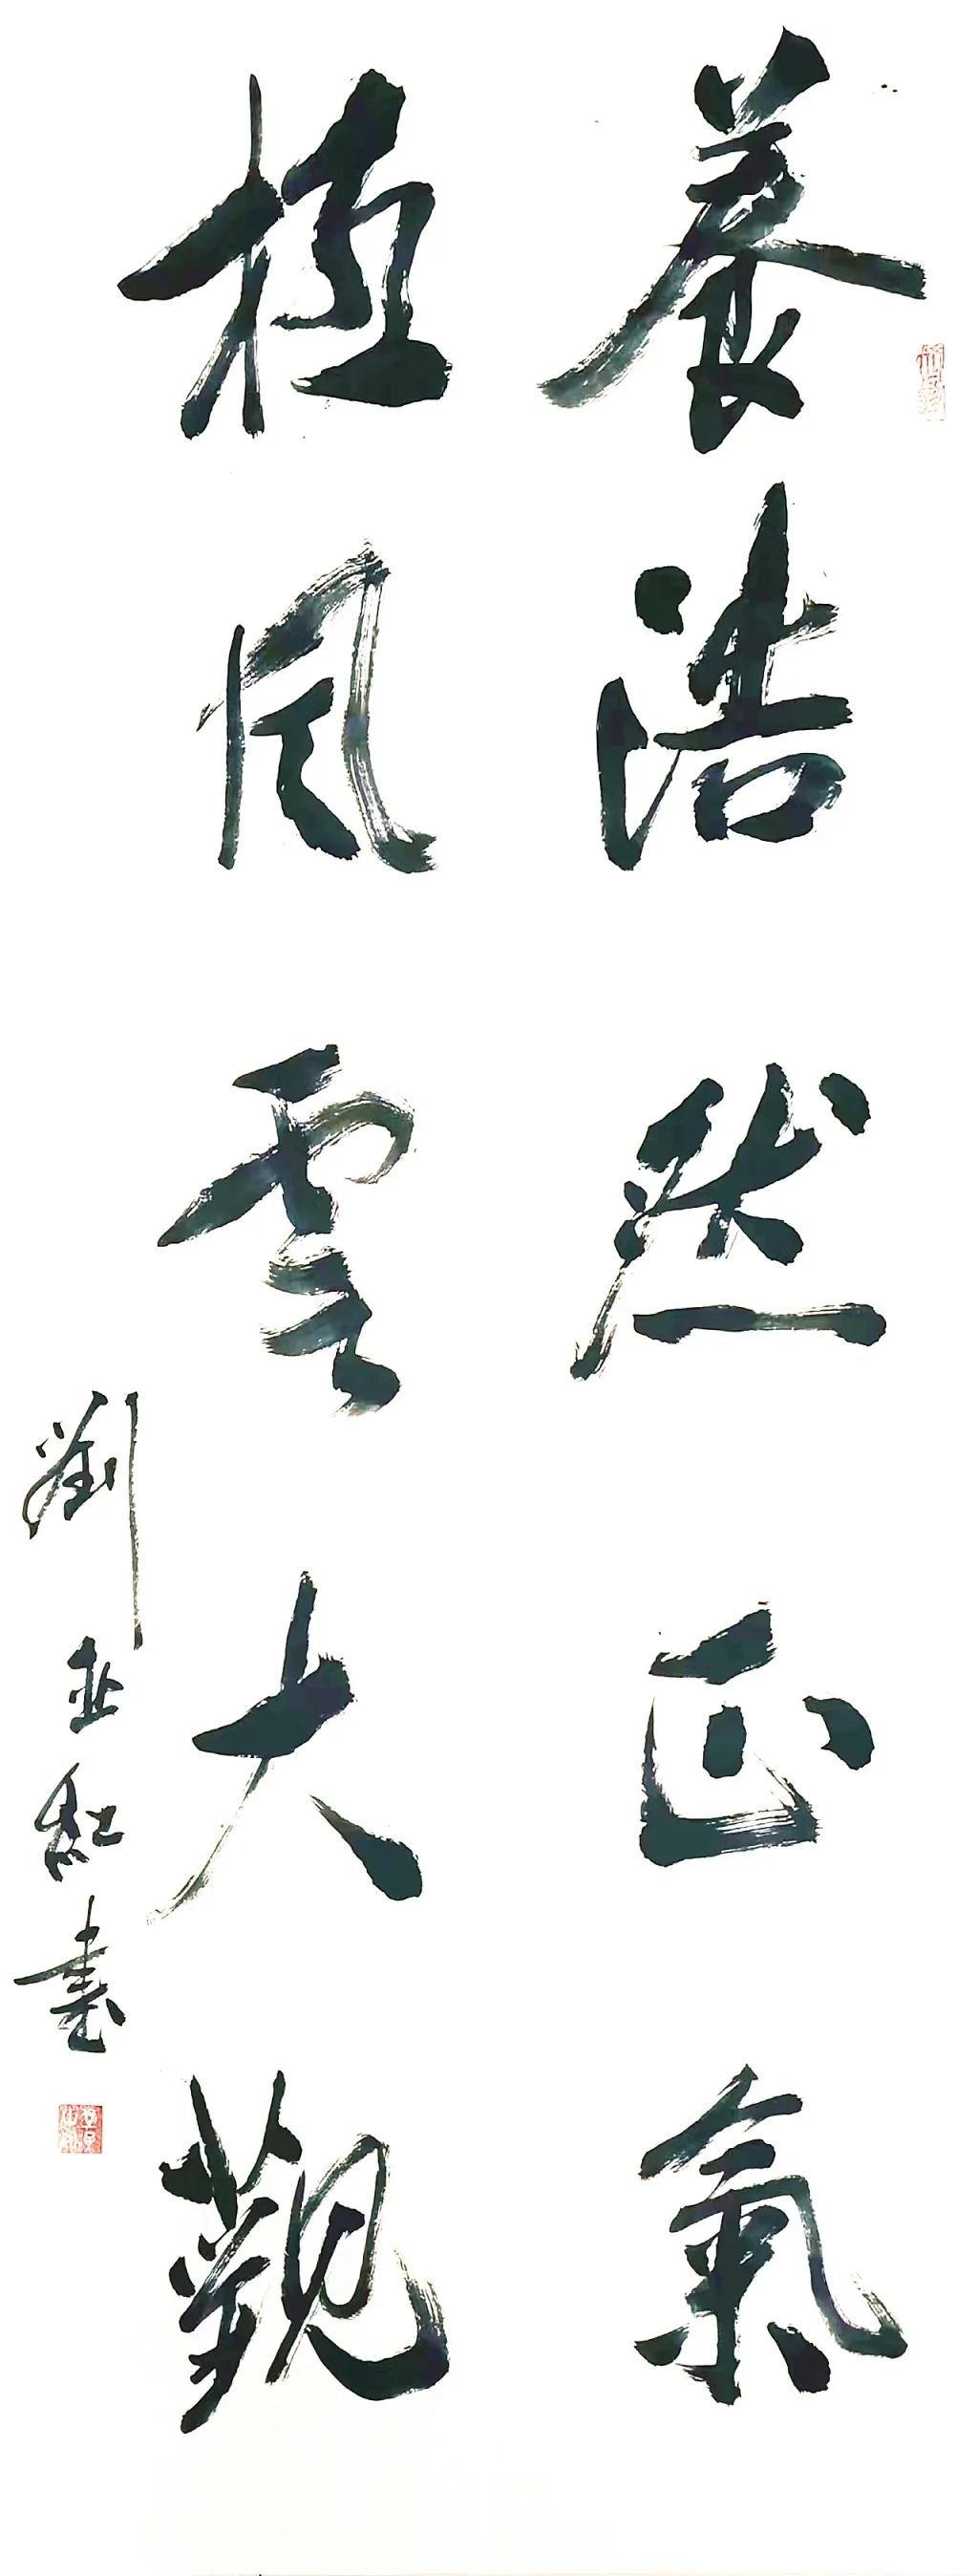 養浩然正氣
極風雲大觀
劉亚紅書